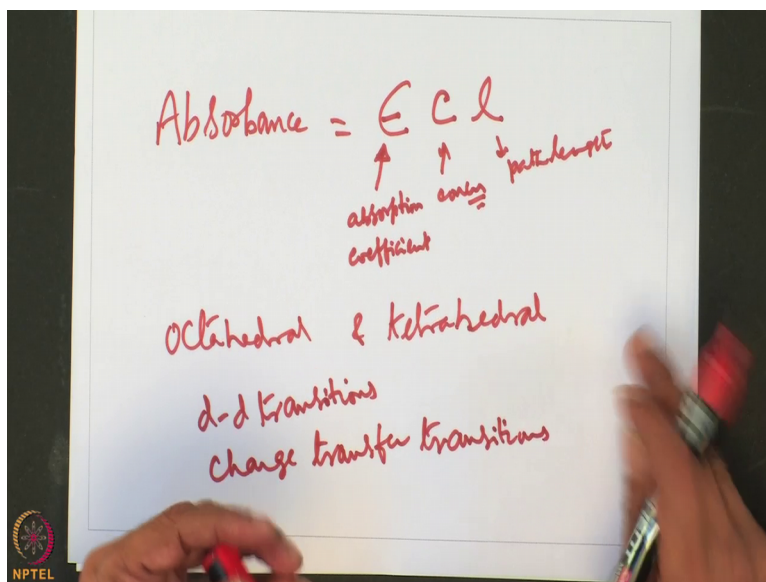 Absorbance = ε c l
absorption concn pathlength
coefficient
Octahedral & tetrahedral
d-d transitions
Charge transfer transitions
NPTEL